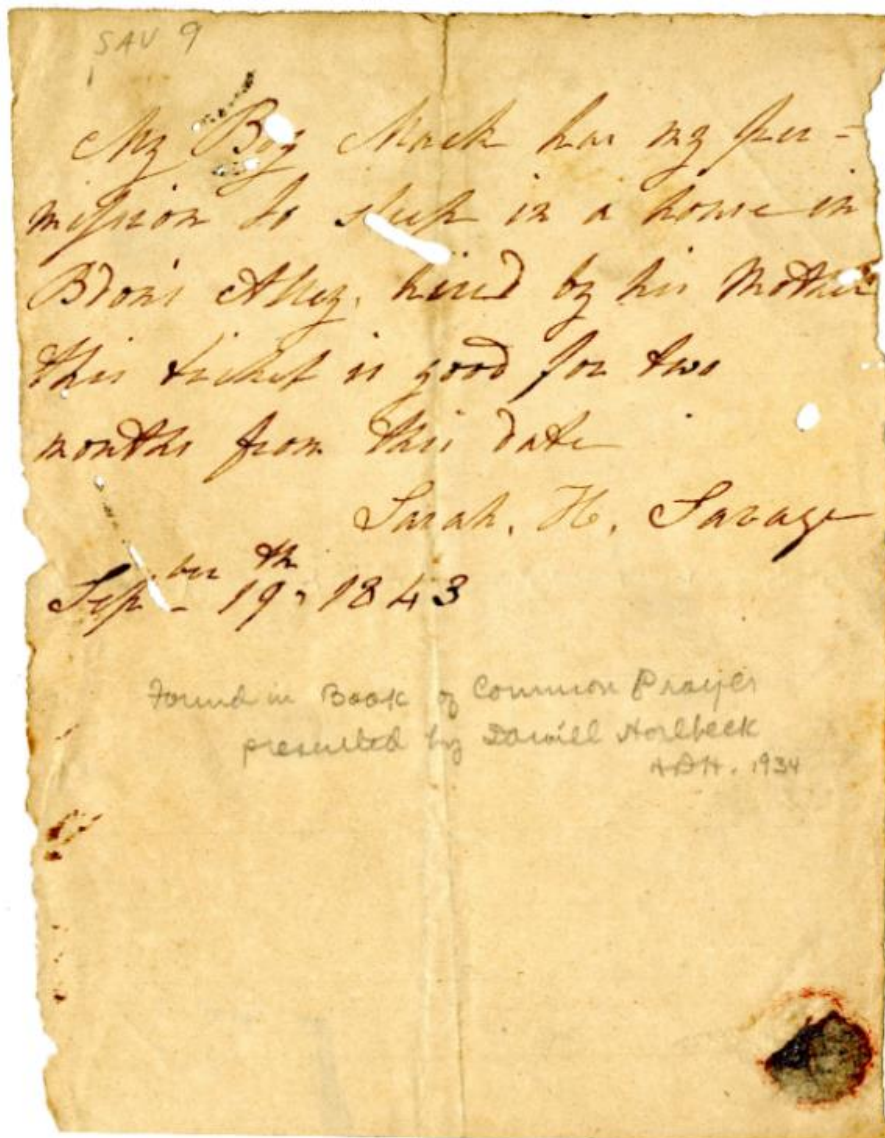 SAV 9
My Boy Mack has my per=
mission to sleep in a house in
Alley. hired by his Mother
this ticket is good for two
months from this date
Sarah. H. Savage
Sepber 19th 1843
Found in Book of Common Prayer
presented by Horlbeck
1934